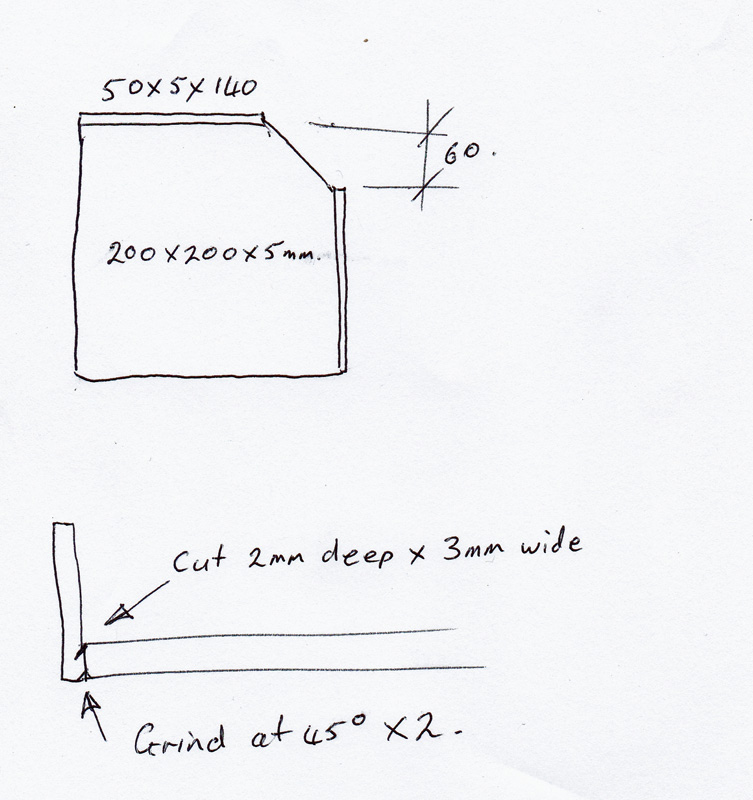 50x5x140
60.
200x200x5mm.
Cut 2mm deep x 3mm wide
Grind at 45° x2.